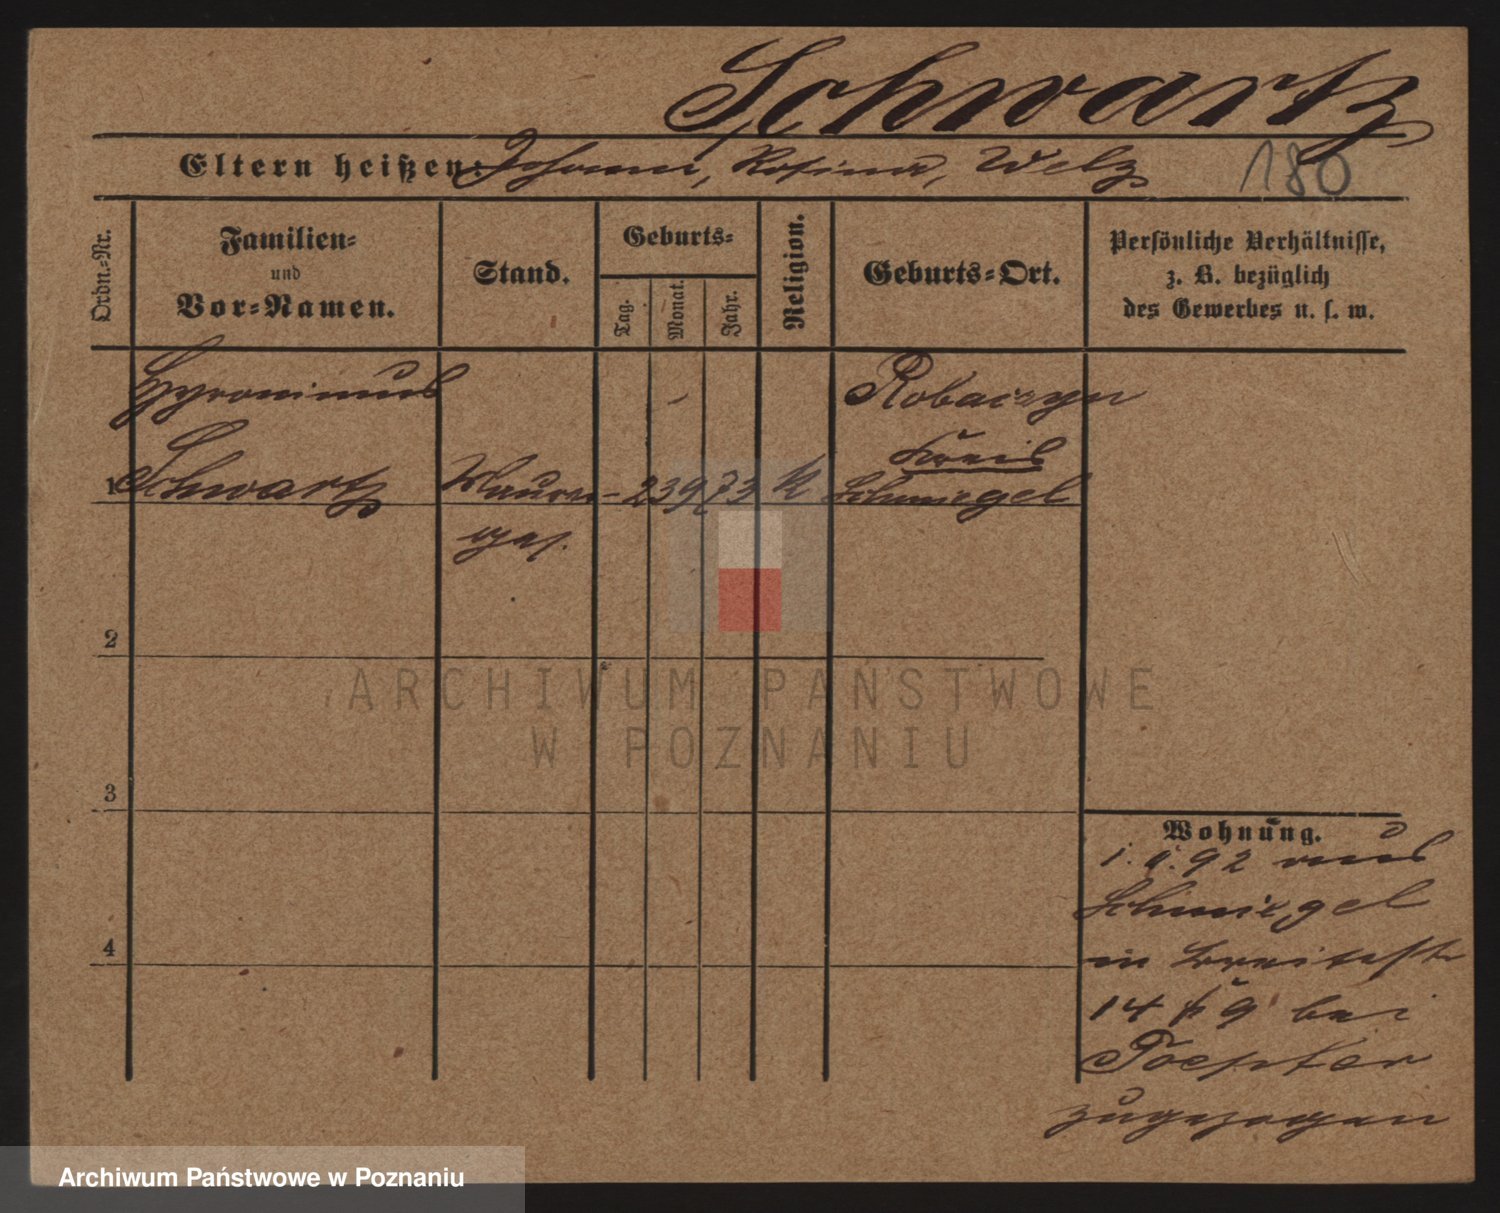 Schwartz
Eltern heißen: Johann, Rosina, Welz
180
Ordn.-Nr.
Familien-
und
Vor-Namen.
Stand.
Geburts-
Tag.
Monat.
Jahr.
Religion.
Geburts-Ort.
Persönliche Verhältnisse,
z. B. bezüglich
des Gewerbes u. s. w.
Hyronimus
Robaczyn
Kreis
1 Schwartz Maurer- 23 9 73 K Schmiegel
ges.
2
3
4
Wohnung.
92 aus
Schmiegel
in Breitestr
14 bei
zugezogen
ARCHIWUM PAŃSTWOWE
W POZNANIU
Archiwum Państwowe w Poznaniu